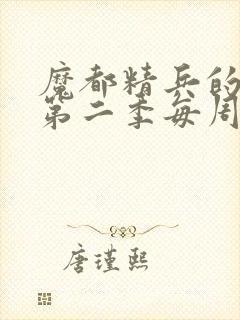 魔都精兵的
第二季每周
唐瑾熙